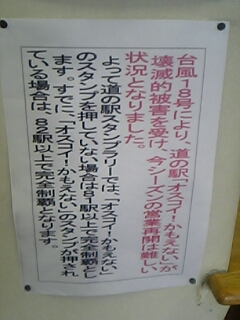 台風18号により、道の駅「オスコイ！かもえない」が
壊滅的被害を受け、今シーズンの営業再開は難しい
状況となりました。
よって道の駅スタンプラリーでは、「オスコイ！かもえない」
のスタンプを押していない場合は81駅以上で完全制覇とし
ます。すでに、「オスコイ！かもえない」のスタンプが押され
ている場合は、82駅以上で完全制覇となります。